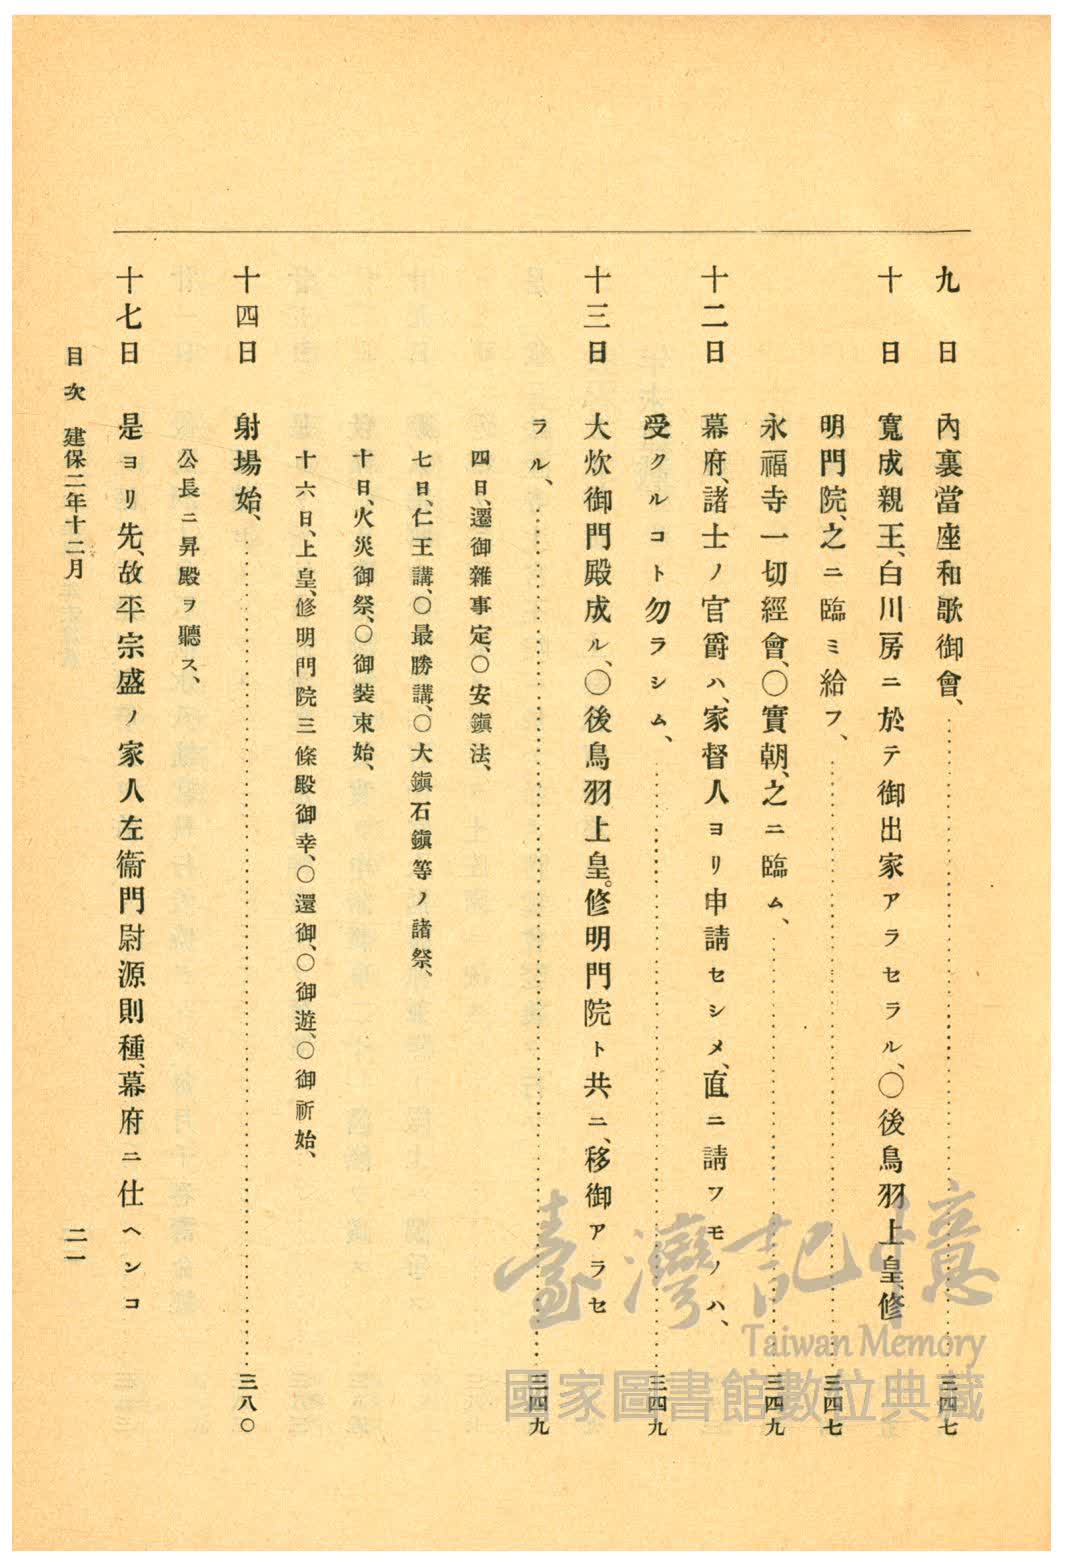 九日 內裏當座和歌御會、………三四七
十日 寬成親王、白川房ニ於テ御出家アラセラル、〇後鳥羽上皇、修
明門院、之ニ臨ミ給フ、………三四七
永福寺一切經會、〇實朝、之ニ臨ム、………三四九
十二日 幕府、諸士ノ官爵ハ、家督人ヨリ申請セシメ、直ニ請フモノハ、
受クルコト勿ラシム、………三四九
十三日 大炊御門殿成ル、〇後鳥羽上皇。修明門院ト共ニ、移御アラセ
ラル、………三四九
四日、遷御雜事定、〇安鎭法、
七日、仁王講、〇最勝講、〇大鎭石鎭等ノ諸祭、
十日、火災御祭、〇御裝束始、
十六日、上皇、修明門院三條殿御幸、〇還御、〇御遊、〇御祈始、
十四日 射場始、………三八〇
公長ニ昇殿ヲ聽ス、
十七日 是ヨリ先、故平宗盛ノ家人左衞門尉源則種、幕府ニ仕ヘンコ
目次 建保二年十二月 二一
臺灣記憶
Taiwan Memory
國家圖書館數位典藏